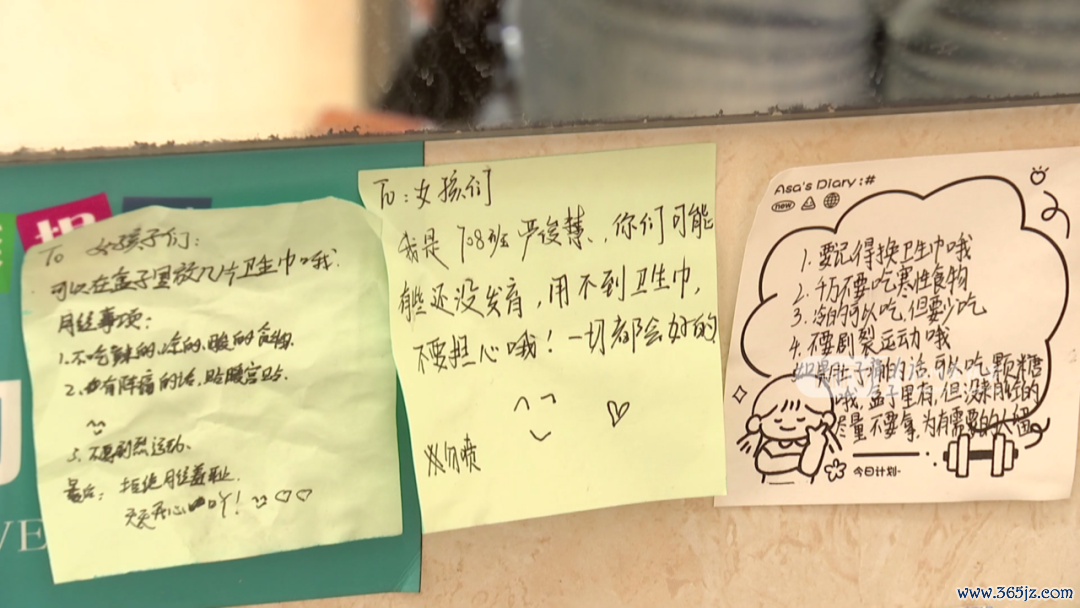 To 女孩子们:
可以在盒子里放几片卫生巾哦.
月经事项:
1.不吃辣的,凉的,酸的食物.
2.如有阵痛的话,贴暖宫贴.
3.不要剧烈运动、
最后: 拒绝月经羞耻.
天天开心
To:女孩们
我是708班严俊慧,你们可能
有些还没发育,用不到卫生巾,
不要担心哦!一切都会好的
※勿喷
Asa's Diary:#
new
1.要记得换卫生巾哦
2.千万不要吃寒性食物
3.冷的可以吃,但要少吃
4.不要剧裂运动哦
如果肚子痛的话,可以吃颗糖
哦,盒子里有,但没来月经的
尽量不要拿,为有需要的人留
今日计划-
VE
www.365jz.com